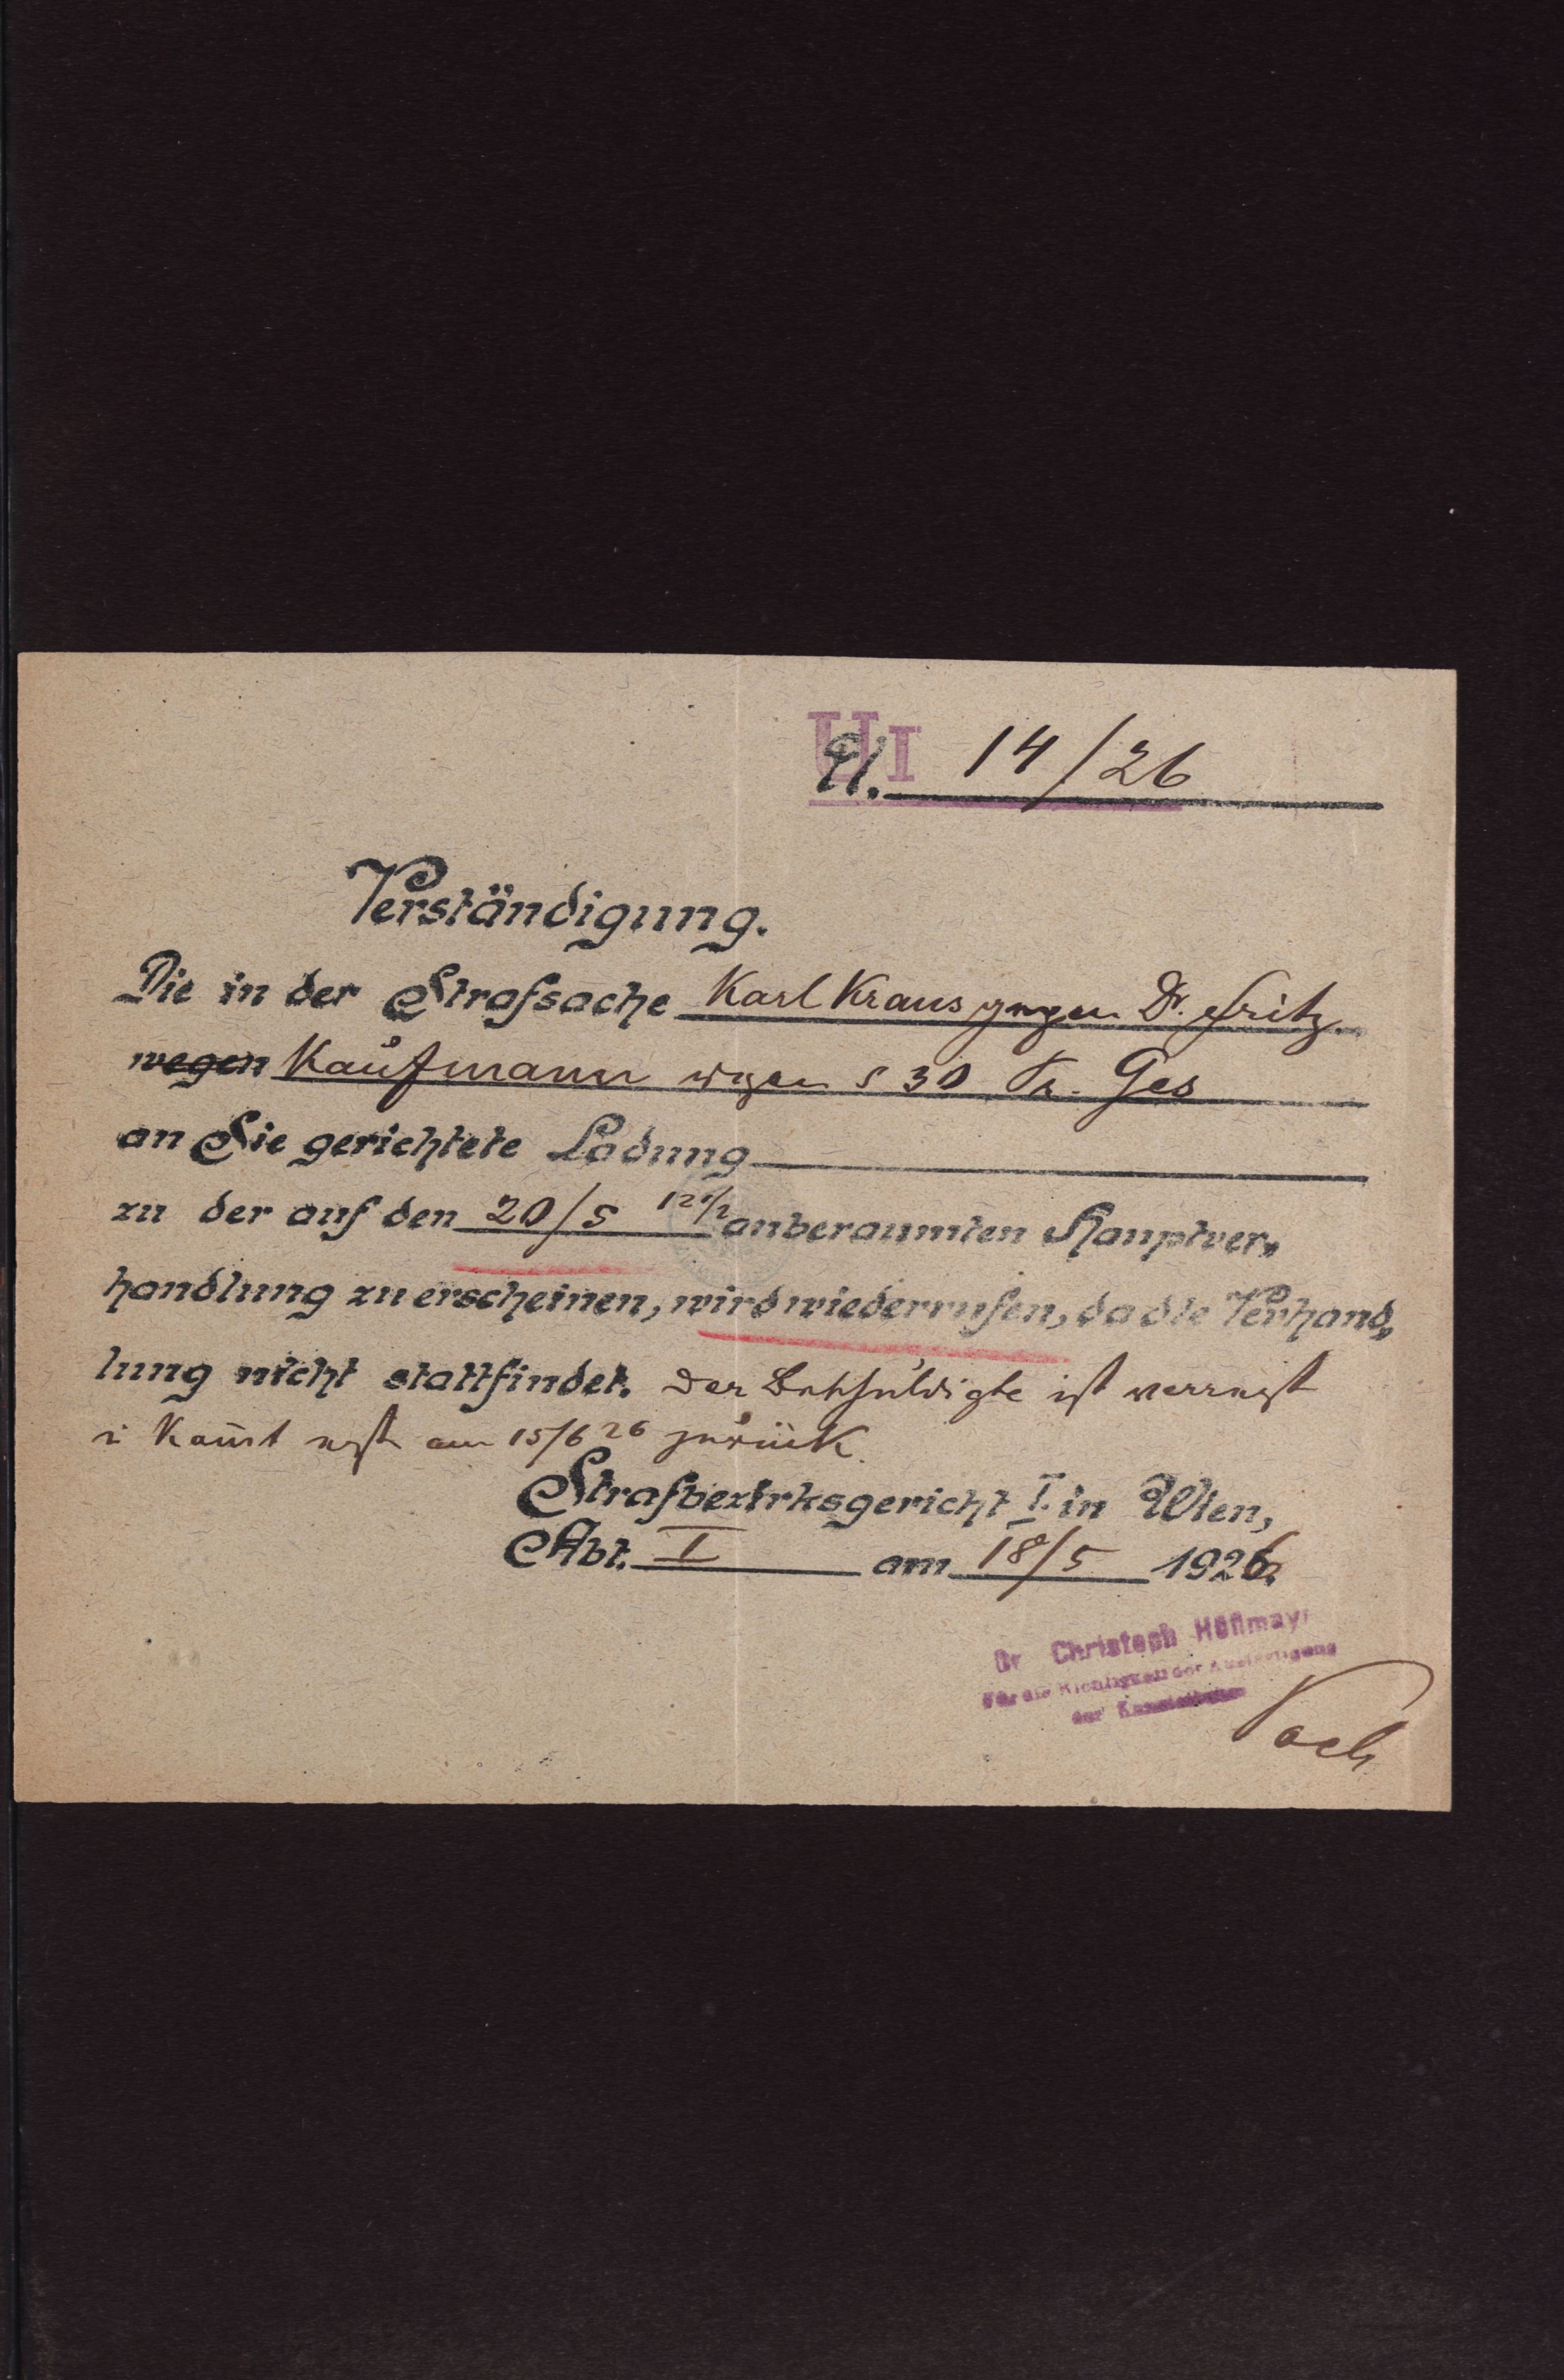 U I
U. 14/26
Verständigung.
Die in der Strafsache Karl Kraus gegen Dr. Fritz
wegen Kaufmann wegen § 30 Pr. Ges
an Sie gerichtete Ladung
zu der auf den 20/5 12 1/2 anberaumten Hauptver„
handlung zu erscheinen, wird wiederrufen, da die Verhand„
lung nicht stattfindet. Der Beschuldigte ist verreist
u kom̅t erst am 15/6 26 zurück.
Strafbezirksgericht I. in Wien,
Abt. I am 18/5 1926.
Dr Christoph Höflmayr
Für die Richtigkeit der Ausfertigung
der